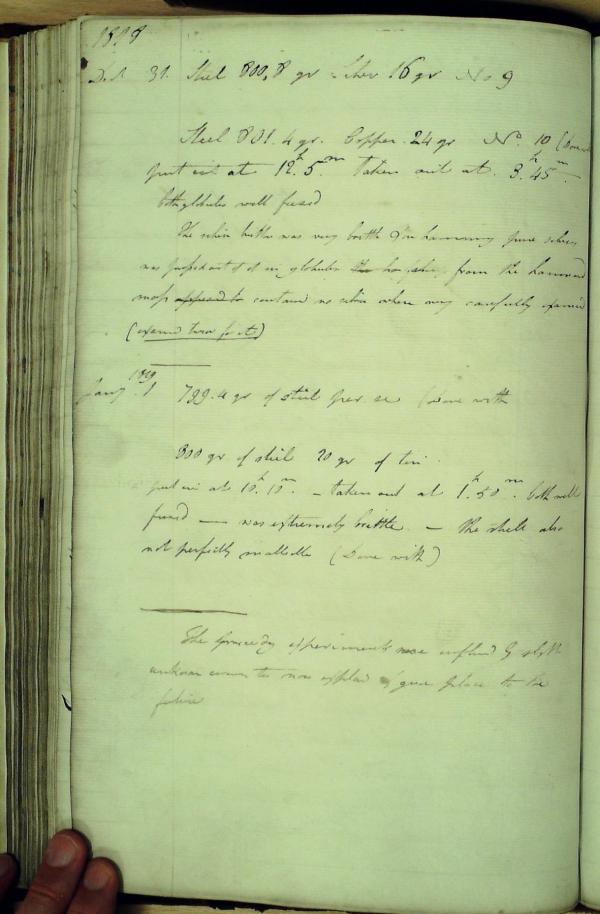 1818
Dec. 31. Steel 800,8 gr Silver 16 gr No 9
Steel 801.4 gr. Copper. 24 gr No. 10 (Done
put in at 12h. 5m taken out at. 3h. 45m.
both globules well fused
The silver button was very brittle On hammering pure silver
was out of it in globules the from the hammered
mass appeard to contain no silver when very carefully examined
1819
Jany. 1 799.4 gr of steel per se (Done with
800 gr of steel 20 gr of tin.
put in at 10h. 10m. – taken out at 1h. 50m. both well
fused — was extremely brittle. – the steel also
not perfectly malleable (Done with)
The preceding experiments were
unknown now give place to the
future